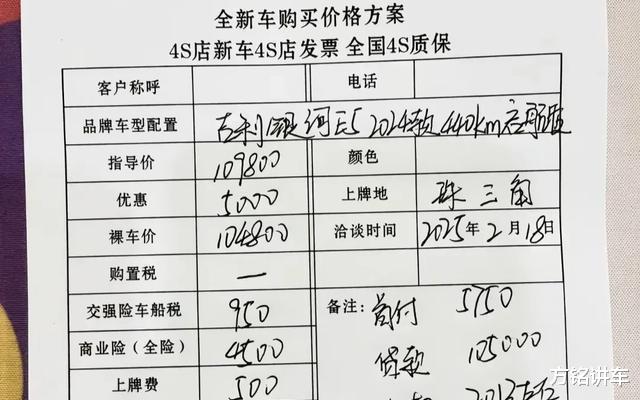 全新车购买价格方案
4S店新车4S店发票 全国4S质保
客户称呼 电话
品牌车型配置 吉利银河E5 2024款 440km启航版
指导价 109800 颜色
优惠 5000 上牌地 珠三角
裸车价 104800 洽谈时间 2025年2月18日
购置税 —
交强险车船税 950 备注: 首付 5750
商业险(全险) 4500 贷款 105000
上牌费 500
方铭讲车